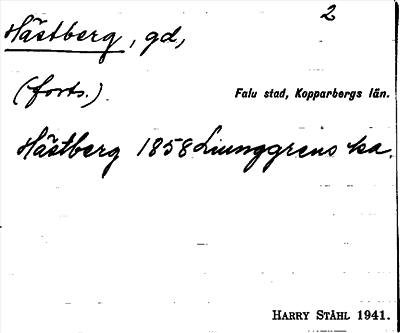 2
Hästberg, gd,
(forts.)
Falu stad, Kopparbergs län.
Hästberg 1858 Ljunggrens ka.
HARRY STÅHL 1941.